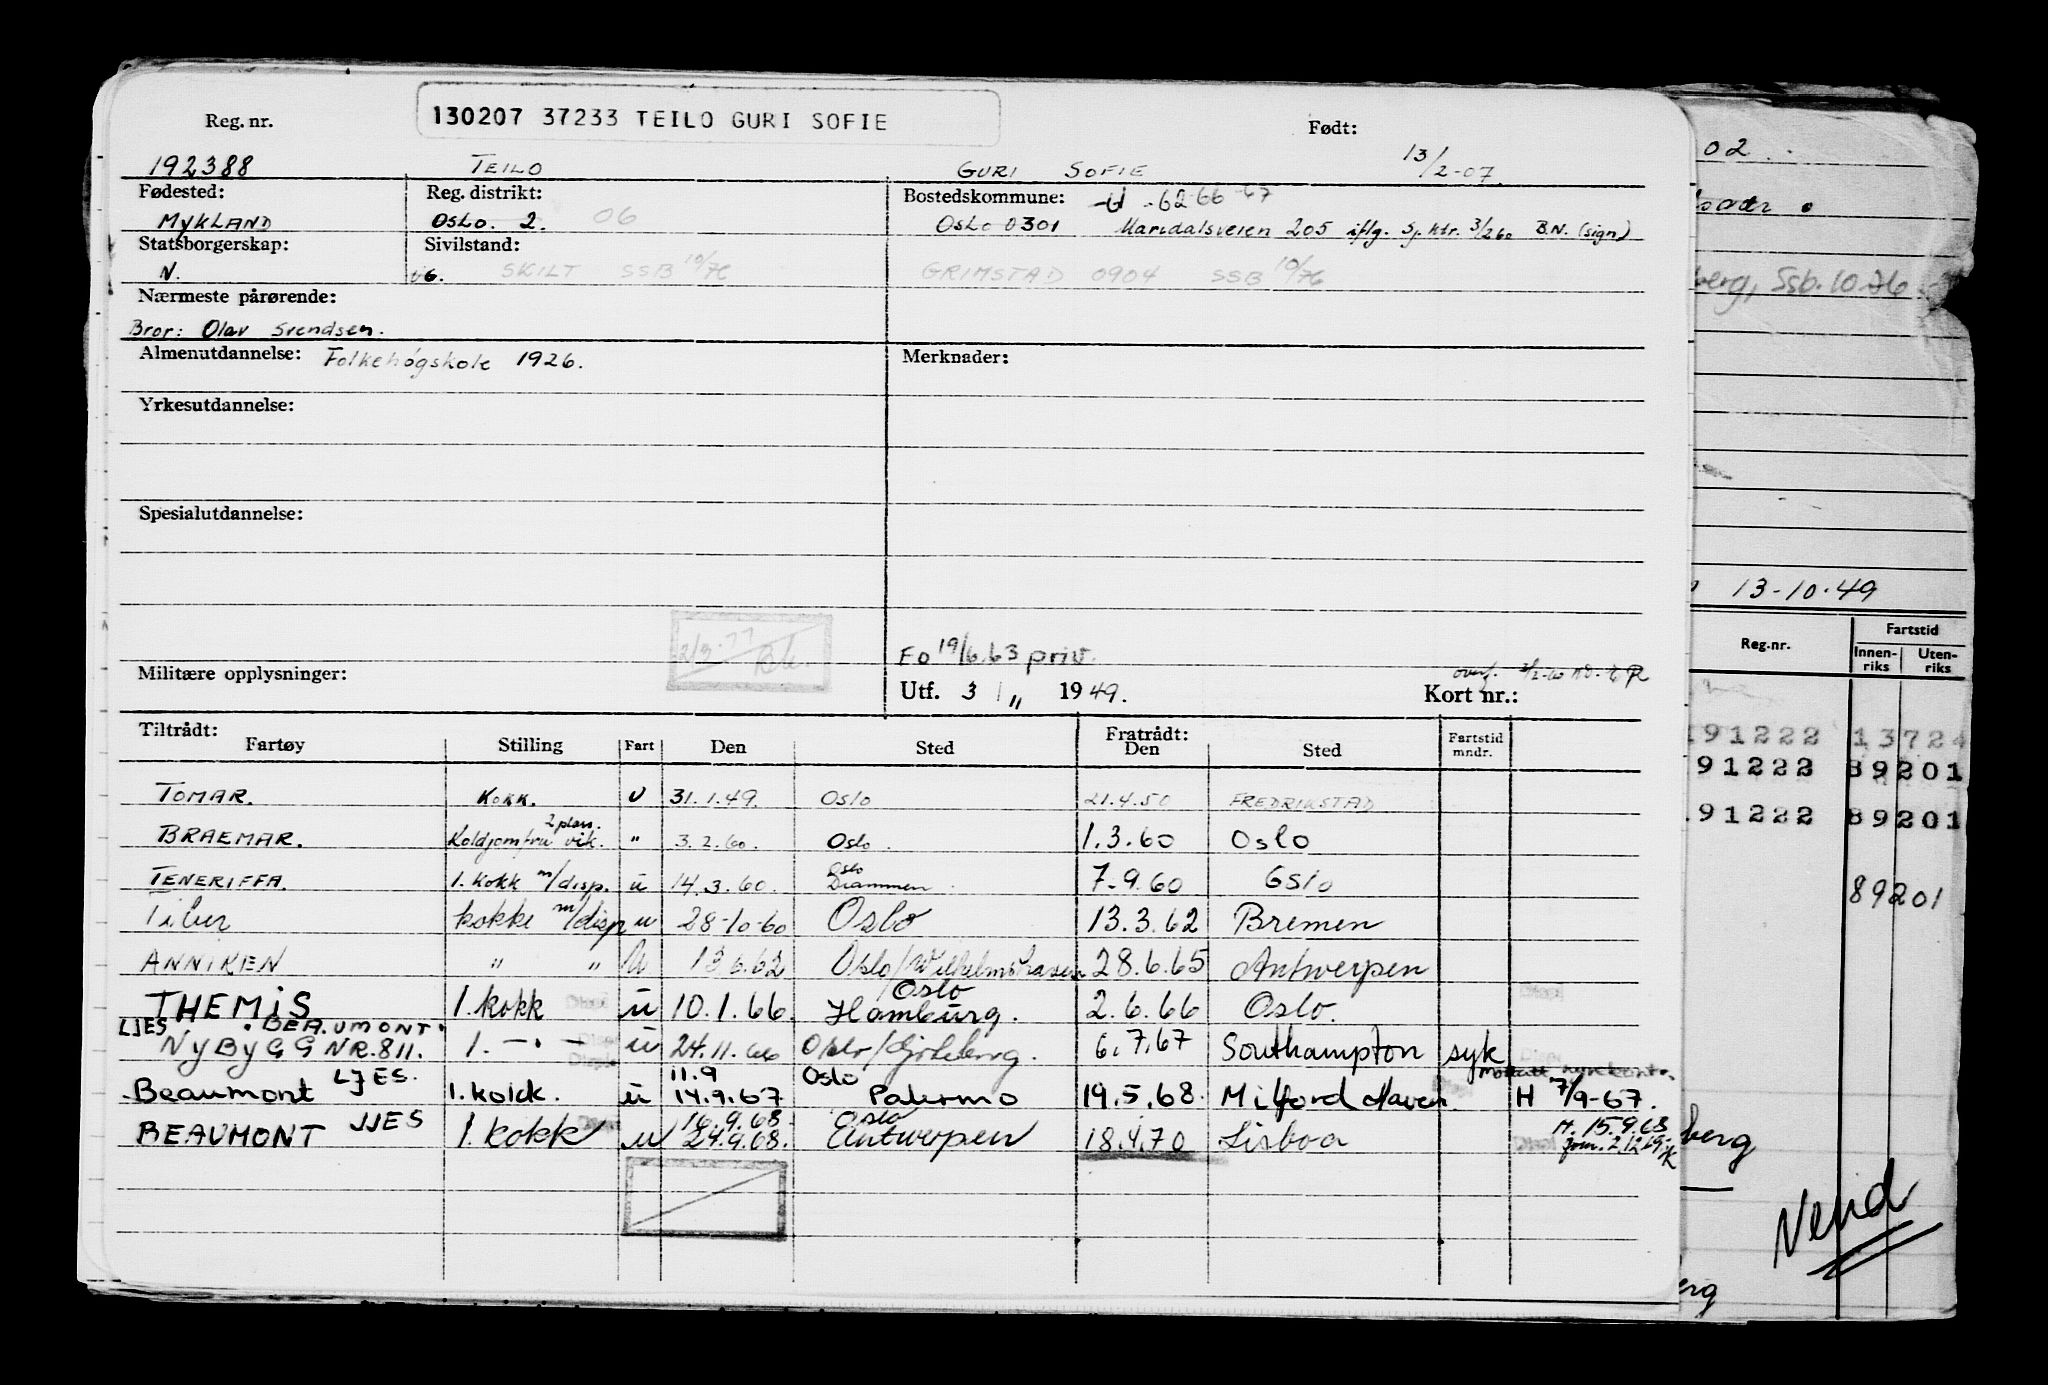 130207 37233 TEILO GURI SOFIE
Reg. nr. Født:
192388 TEILO GURI SOFIE 13/2-07.
Fødested: Reg. distrikt: Bostedskommune: -U -62-66-67
MYKLAND OSLO. 2. 06 OSLO 0301 Maridalsveien 205 iflg. Sj. ktr. 3/2 60 B.N. (sign)
Statsborgerskap: Sivilstand:
N. UG. SKILT SSB 10/76 GRIMSTAD 0904 SSB 10/76
Nærmeste pårørende:
Bror: Olav Svendsen.
Almenutdannelse: Folkehøgskole 1926. Merknader:
Yrkesutdannelse:
Spesialutdannelse:
2/3.77 Fo 19/6.63 priv.
Militære opplysninger: Utf. 3 / " 1949. Kort nr.:
Tiltrådt: Fratrådt:
Fartøy Stilling Fart Den Sted Den Sted Fartstid mndr.
TOMAR. KOKK. U 31.1.49. OSLO 21.4.50 FREDRIKSTAD
2 plass.
BRAEMAR. Koldjomfru vik. " 3.2.60. Oslo. 1.3.60 Oslo
Oslo
TENERIFFA. 1. kokk m/disp. u 14.3.60. Drammen. 7.9.60 Oslo
Tiber kokke m/disp u 28-10-60 Oslo 13.3.62 Bremen
ANNIKEN " " U 13.6.62 Oslo/Wilhelmshaven 28.6.65 Antwerpen
Oslo
THEMIS 1. kokk u 10.1.66. Hamburg. 2.6.66 Oslo.
LJES "BEAUMONT"
NYBYGG NR. 811. 1. -"- u 24.11.66 Oslo/Gøteborg. 6.7.67 Southampton syk
11.9 Oslo
Beaumont LJES. 1. kokk. u 14.9.67 Palermo 19.5.68. Milford Haven. H 7/9-67.
16.9.68. Oslo M. 15.9.68
BEAUMONT JJES 1. kokk u 24.9.68. Antwerpen 18.4.70 Lisboa
02.
berg, Ssb. 10.76
13-10-49
Reg.nr. Fartstid
Innenriks Utenriks
191222 13724
91222 89201
191222 89201
89201
berg
Vend
erg